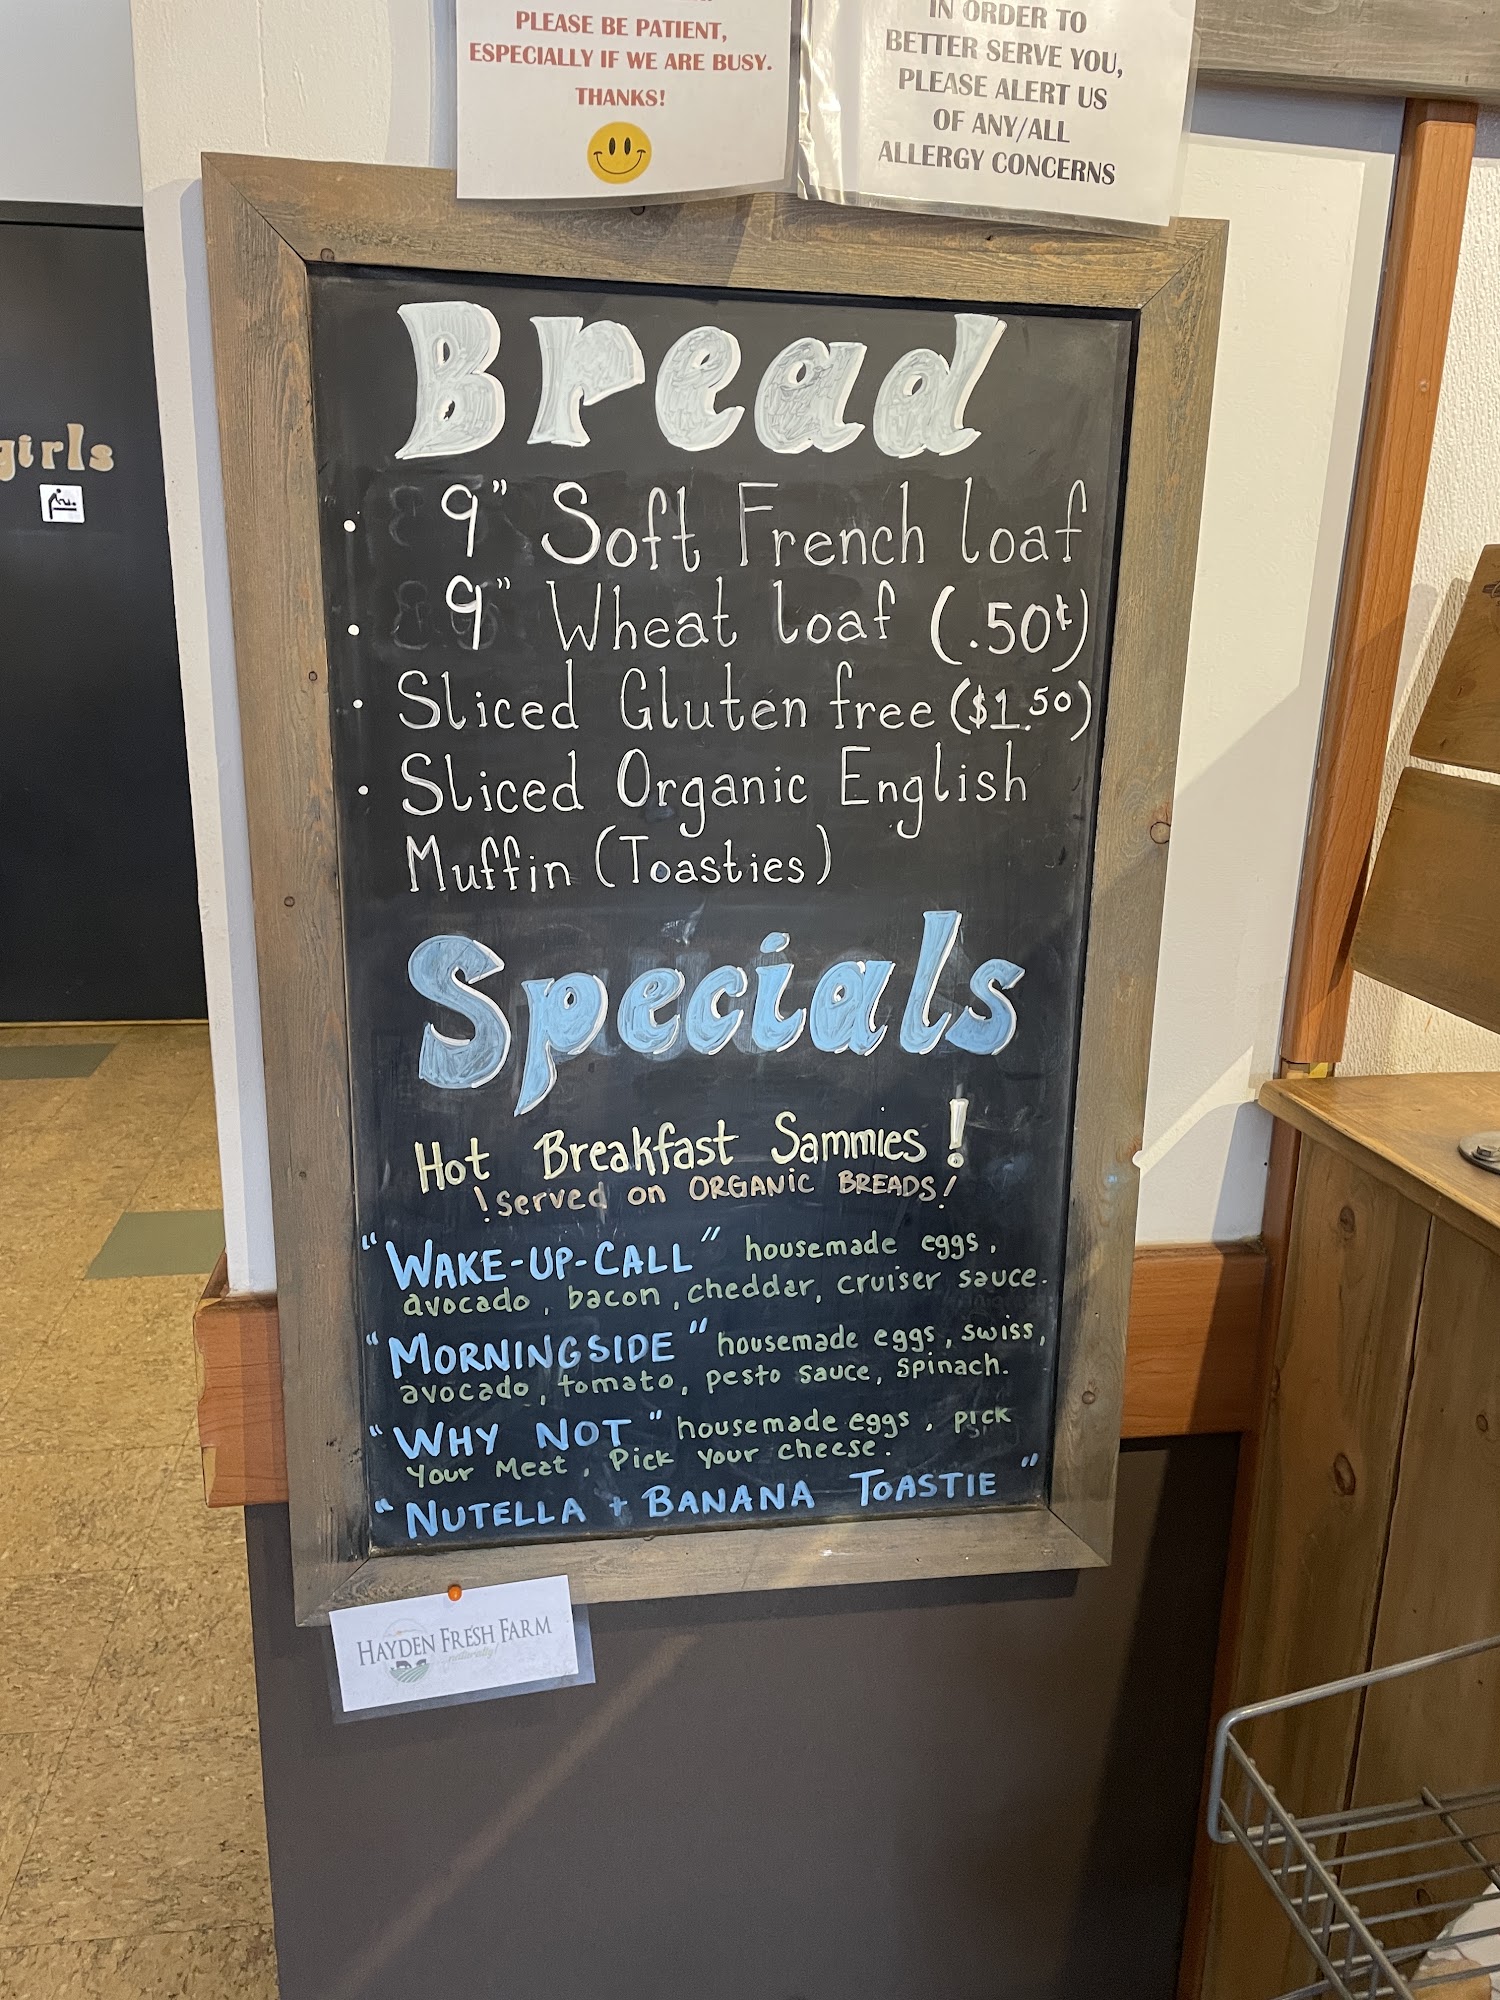 PLEASE BE PATIENT,
ESPECIALLY IF WE ARE BUSY.
THANKS!
IN ORDER TO
BETTER SERVE YOU,
PLEASE ALERT US
OF ANY/ALL
ALLERGY CONCERNS
girls
Bread
• 9" Soft French loaf
• 9" Wheat loaf (.50¢)
• Sliced Gluten free ($1.50)
• Sliced Organic English
Muffin (Toasties)
Specials
Hot Breakfast Sammies!
! Served on ORGANIC BREADS!
"WAKE-UP-CALL" housemade eggs,
avocado, bacon, cheddar, cruiser sauce.
"MORNINGSIDE" housemade eggs, swiss,
avocado, tomato, pesto sauce, spinach.
"WHY NOT" housemade eggs, pick
your Meat, Pick your cheese.
"NUTELLA + BANANA TOASTIE"
HAYDEN FRESH FARM
naturally!